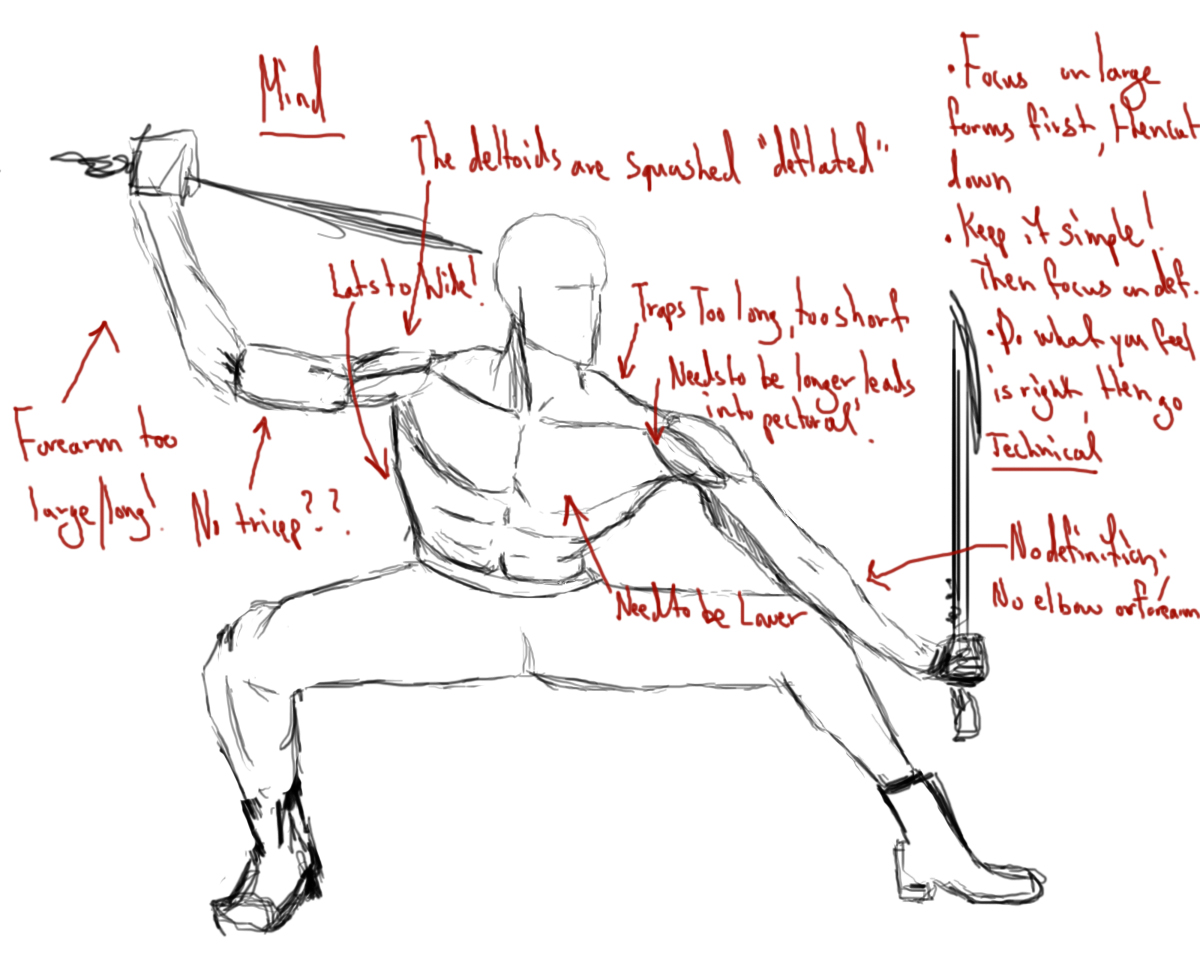 Mind
The deltoids are squashed "deflated"
Lats to Wide!
Traps Too long, too short
Needs to be longer leads
into pectoral!
Forearm too
large/long!
No tricep??
Need to be Lower
No definition,
No elbow or forearm
• Focus on large
forms first, then cut
down
• Keep it simple!
Then focus on def.
• Do what you feel
is right, then go
Technical